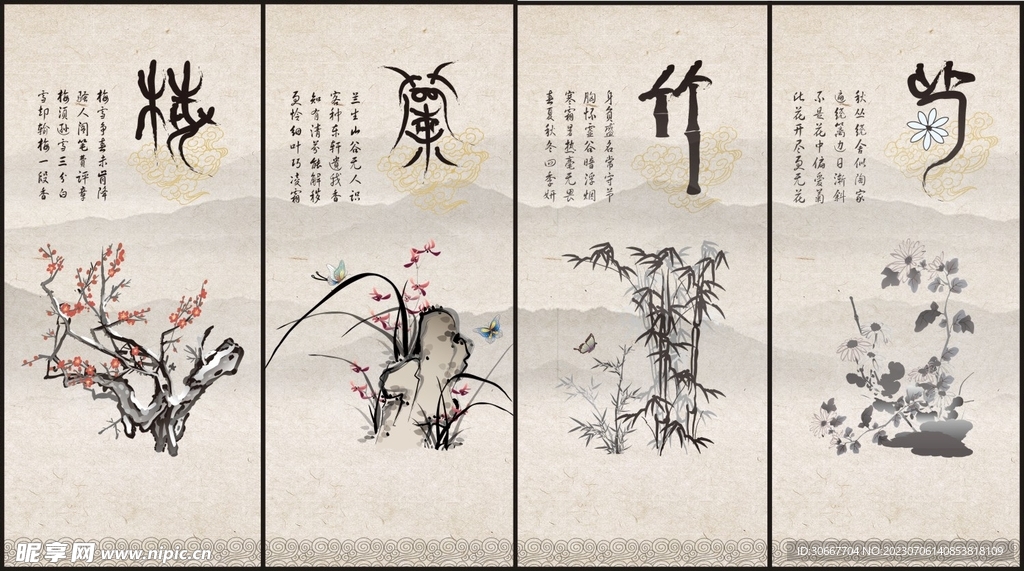 梅
梅雪争春未肯降
骚人阁笔费评章
梅须逊雪三分白
雪却输梅一段香
蘭
兰生山谷无人识
客种东轩遗我香
知有清芬能解秽
更怜细叶巧凌霜
竹
身负盛名常守节
胸怀虚谷暗浮烟
寒霜苦热毫无畏
春夏秋冬四季妍
菊
秋丛绕舍似陶家
遍绕篱边日渐斜
不是花中偏爱菊
此花开尽更无花
昵享网 www.nipic.cn
ID:30667704 NO:20230706140853818109